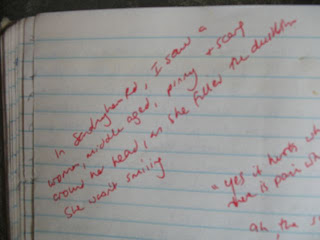 In Sandringham Rd, I saw a
woman, middle aged, pinny + scarf
around her head, as she filled the dustbin
She wasn't smiling
"yes it hurts wh
there is pain wh
ah the s